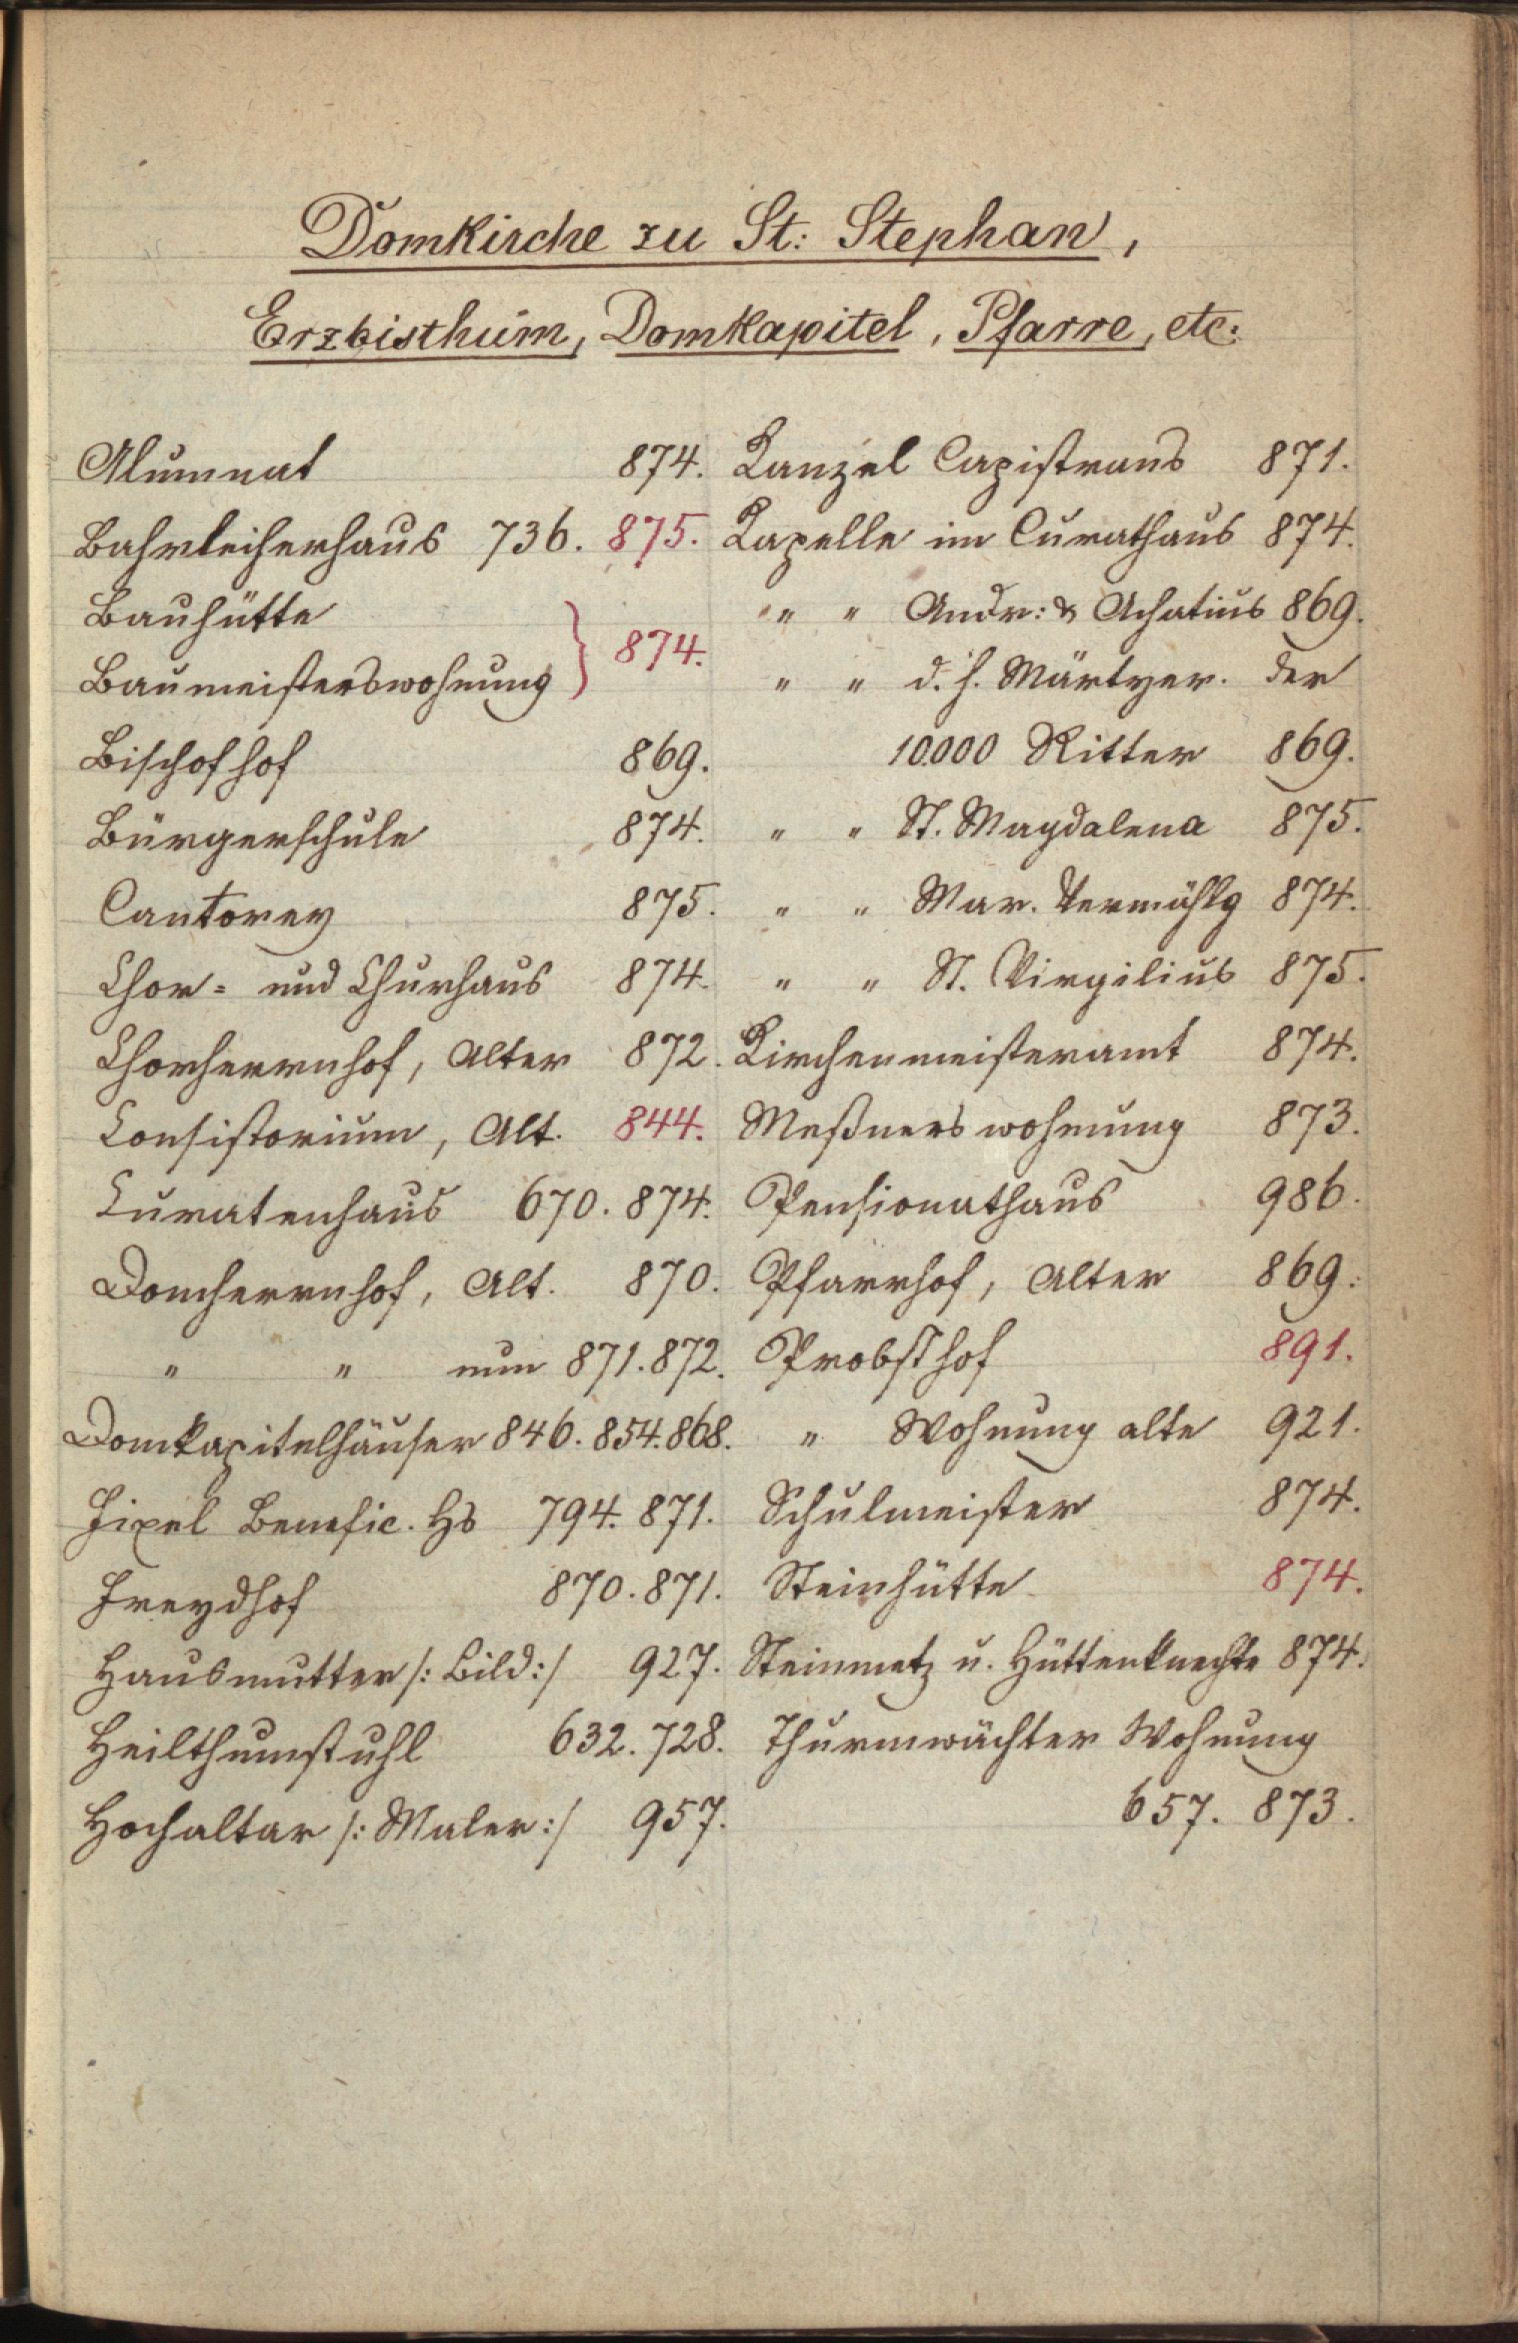 Domkirche zu St: Stephan,
Erzbisthum, Domkapitel, Pfarre, etc:
Alumnat 874.
Bahrleiherhaus 736. 875.
Bauhütte
Baumeisterswohnung } 874.
Bischofhof 869.
Bürgerschule 874.
Cantorey 875.
Chor= und Churhaus 874.
Chorherrnhof, Alter 872.
Consistorium, Alt. 844.
Curatenhaus 670. 874.
Domherrnhof, Alt. 870.
" " nun 871. 872.
Domkapitelhäuser 846. 854. 868.
Fixel Benefic. Hs 794. 871.
Freydhof 870. 871.
Hausmutter /: Bild :/ 927.
Heilthumstuhl 632. 728.
Hochaltar /: Maler :/ 957.
Kanzel Capistrans 871.
Kapelle im Curathaus 874.
" " Andr: & Achatius 869.
" " d. h. Märtyer. der
10.000 Ritter 869.
" " St. Magdalena 875.
" " Mar. Vermählg 874.
" " St. Virgilius 875.
Kirchenmeisteramt 874.
Meßners wohnung 873.
Pensionathaus 986.
Pfarrhof, Alter 869.
Probsthof 891.
" Wohnung alte 921.
Schulmeister 874.
Steinhütte 874.
Steinmetz u. Hüttenknechte 874.
Thurmwächter Wohnung
657. 873.